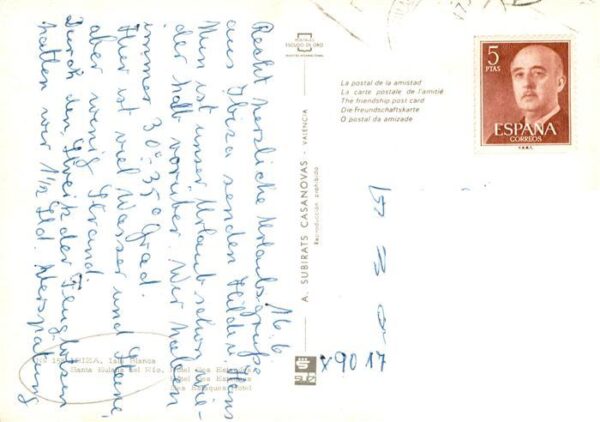 16.6.
Recht herzliche Urlaubsgrüße
aus Ibiza senden Hilde u. Hans
Nun ist unser Urlaub schon wie-
der halb vorüber. Wir haben
immer 30°-35° Grad.
Hier ist viel Wasser und Sonne,
aber wenig Strand.
Durch den Streik der Fluglotsen
hatten wir 1 1/2 Std. Verspätung
POSTALES
ESCUDO DE ORO
A. SUBIRATS CASANOVAS - VALENCIA
Reproducción prohibida
La postal de la amistad
La carte postale de l'amitié
The friendship post card
Die Freundschaftskarte
O postal da amizade
5
PTAS
ESPAÑA
CORREOS
IBIZA, Isla Blanca
Santa Eulalia del Río.
x9017